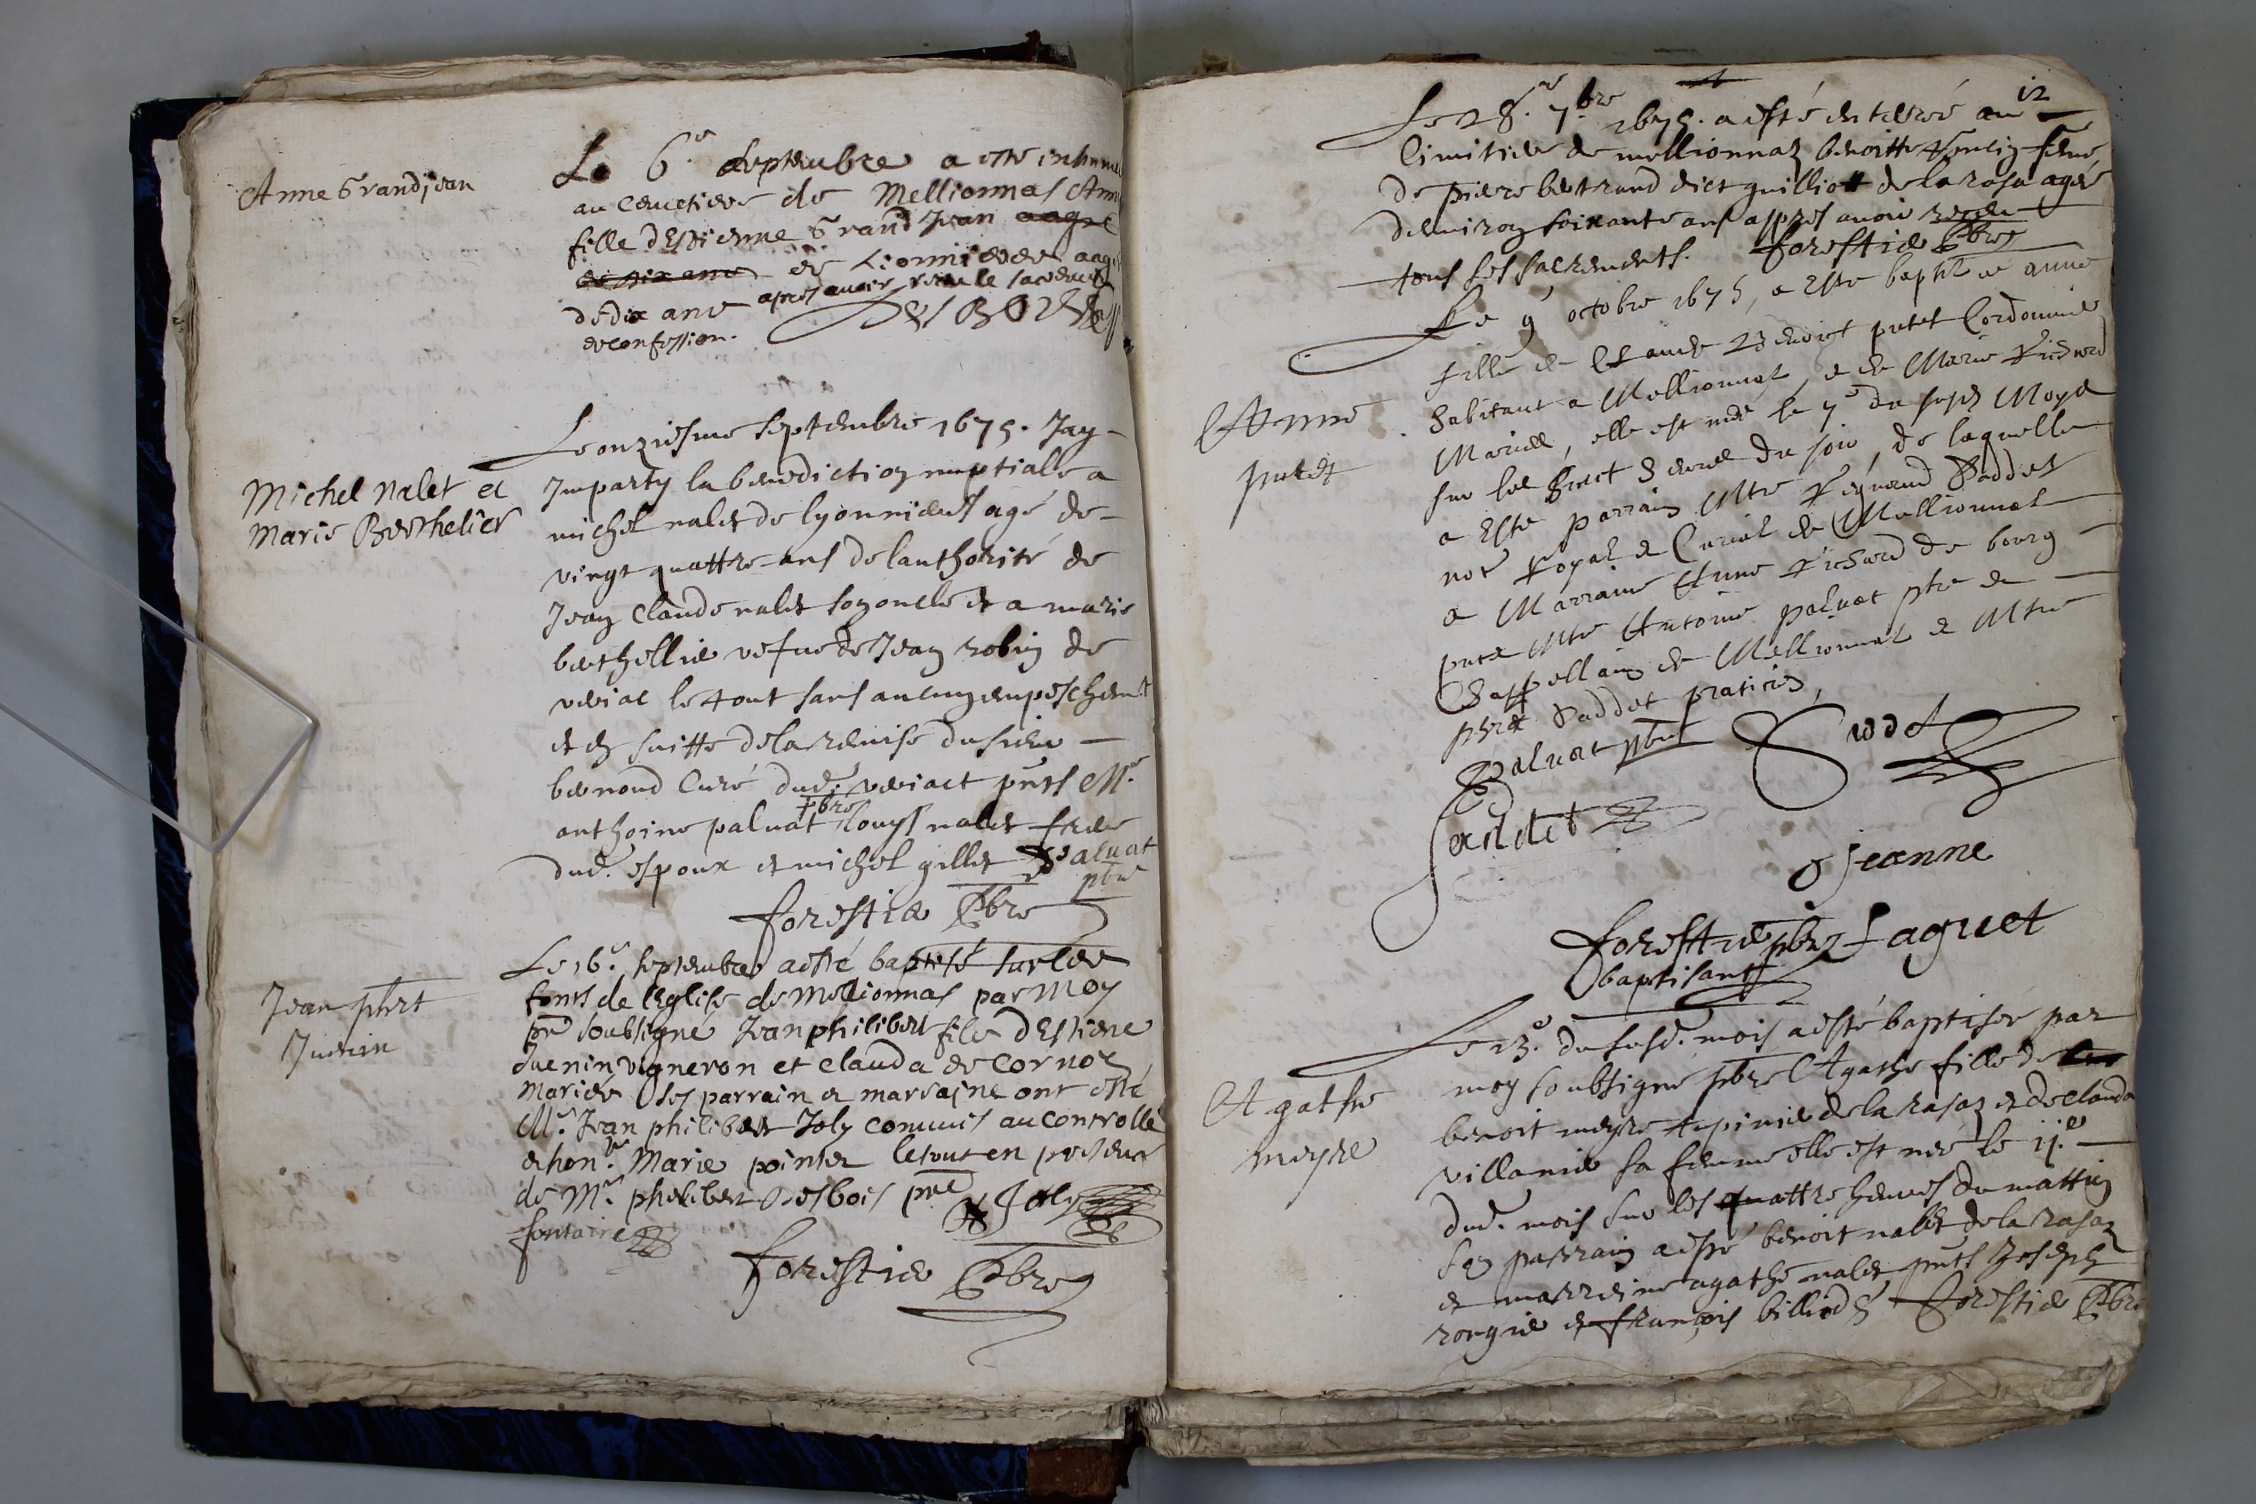 Anne Grandjean
Le 6e septembre a esté inhumé
au cemetiere de Mellionnas Anne
fille d'Estienne Grand Jean aagee
de six ans de Lionnieres aag
de dix ans apres avoir receu le sacrement
de confession.
Michel Nalet et
Marie Berthelier
Le onziesme septembre 1675. Jay
Imparty la benediction nuptiale a
michel nalet de lyonnieres agé de
vingt quattre ans de lauthorité de
Jean Claude nalet son oncle et a marie
berthellier vefue de Jean robin de
veriac le tout sans aucung empeschement
et en suitte de la remise du sieur
bernond Curé dud. veriact pnts Mr
anthoine paluat pbre louys nalet frere
dud. espoux et michel gillet Paluat
pbre
forestier Pbre
Jean phrt
Juenin
Le 16e septembre a esté baptisé sur les
fonts de l'Eglise de Mellionnas par moy
pre soubsigné Jean philibert fils d'Estiene
Juenin vigneron et Clauda de Cornoz
mariés Ses parrain et marraine ont esté
Mr. Jean philibert Joly commis au controlle
et honble. Marie pointer le tout en presence
de Mr. phelibert Desbois pre
Joly
fontaine
forestier Pbre
12
Le 28e 7bre 1675. a esté enterréé au
Cimitiere de mellionnaz benoitte feme
de pierre bertrand dict guilliott de la rasa agéé
denviron soixante ans appres avoir receu
tous les sacrements. forestier Pbre
Anne
putet
Le 9 octobre 1675, a esté baptisée anne
fille de Claude Benoict putet Cordonnier
habitant a Mellionnas, et de Marie Richard
Mariés, elle est née le 7e du susd Moys
sur les huict heures du soir, de laquelle
a esté parrain Mtre Reynaud Saddet
not Royal et Curial de Mellionnas
et Marraine Anne Richard de bourg
pnts Mtre Antoine paluat pbre et
Chappellain de Mellionnas et Mtre
phrt Saddet praticien,
Paluat pbre Sadet
Saddet
Jeanne
forestier pbre Laguet
baptisant
Agathe
meyre
Le 13e. du susd. mois a esté baptisée par
moy soubsigné pbre Agathe fille de
benoit meyre tupinier de la rasaz et de Clauda
villanie sa femme elle est née le 11e
dud. mois sur les quattre heures du mattin
son parrain a esté benoit nallet de la rasaz
et marreine agathe nalet pnts Joseph
rongier et françois billiod forestier Pbre